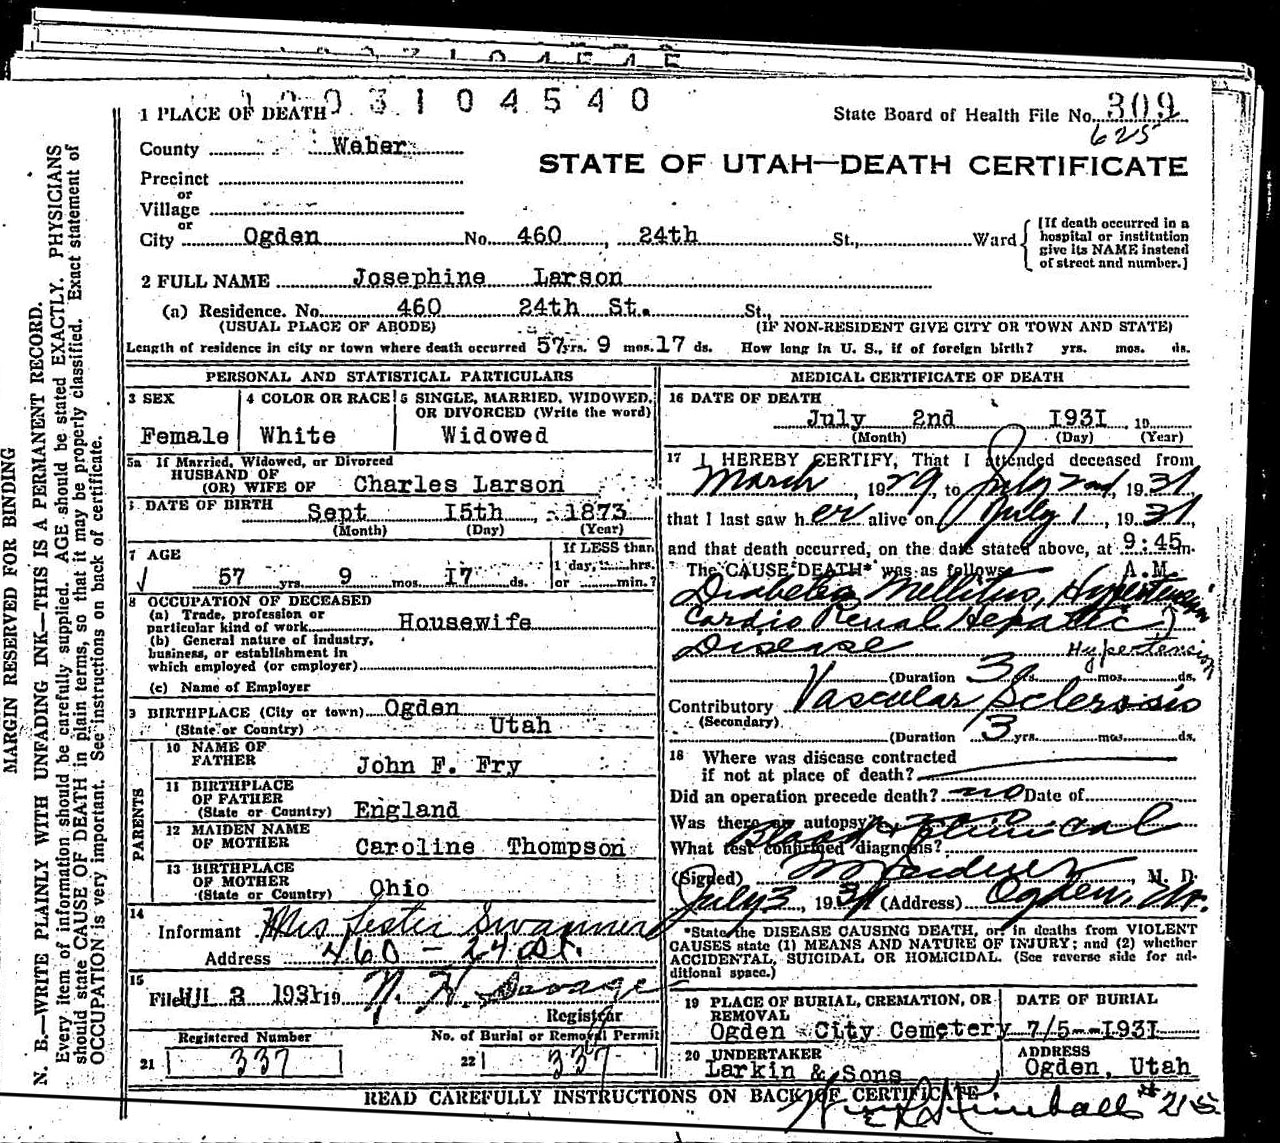 1003104540
1 PLACE OF DEATH
State Board of Health File No. 309
625
County Weber
STATE OF UTAH—DEATH CERTIFICATE
Precinct
or
Village
or
City Ogden No. 460, 24th St., Ward
[If death occurred in a hospital or institution give its NAME instead of street and number.]
2 FULL NAME Josephine Larson
(a) Residence. No. 460 24th St. St.,
(USUAL PLACE OF ABODE) (IF NON-RESIDENT GIVE CITY OR TOWN AND STATE)
Length of residence in city or town where death occurred 57 yrs. 9 mos. 17 ds. How long in U. S., if of foreign birth? yrs. mos. ds.
PERSONAL AND STATISTICAL PARTICULARS
3 SEX
Female
4 COLOR OR RACE
White
5 SINGLE, MARRIED, WIDOWED, OR DIVORCED (Write the word)
Widowed
5a If Married, Widowed, or Divorced
HUSBAND OF
(OR) WIFE OF Charles Larson
DATE OF BIRTH Sept 15th 1873
(Month) (Day) (Year)
7 AGE
57 yrs. 9 mos. 17 ds.
If LESS than
1 day, hrs.
or min.?
8 OCCUPATION OF DECEASED
(a) Trade, profession or
particular kind of work Housewife
(b) General nature of industry,
business, or establishment in
which employed (or employer)
(c) Name of Employer
BIRTHPLACE (City or town) Ogden
(State or Country) Utah
PARENTS
10 NAME OF
FATHER John F. Fry
11 BIRTHPLACE
OF FATHER
(State or Country) England
12 MAIDEN NAME
OF MOTHER Caroline Thompson
13 BIRTHPLACE
OF MOTHER
(State or Country) Ohio
14
Informant Mrs Lester Swanner
Address 460 - 24 St.
15
Filed JUL 3 1931 19 N. H. Savage
Registrar
Registered Number
21 337
No. of Burial or Removal Permit
22 337
MEDICAL CERTIFICATE OF DEATH
16 DATE OF DEATH
July 2nd 1931 19
(Month) (Day) (Year)
17 I HEREBY CERTIFY, That I attended deceased from
March, 1929, to July 2nd, 1931
that I last saw her alive on July 1, 1931
and that death occurred, on the date stated above, at 9:45 m.
The CAUSE DEATH* was as follows A.M.
Diabetes Mellitus, Hypertension
Cardio Renal Hepatic
Disease Hypertension
(Duration 3 mos. ds.
Contributory Vascular Sclerosis
(Secondary)
(Duration 3 yrs. mos. ds.
18 Where was disease contracted
if not at place of death?
Did an operation precede death? no Date of
Was there an autopsy?
What test confirmed diagnosis? Clinical
(Signed) M. D.
July 3, 1931 (Address) Ogden, Ut.
*State the DISEASE CAUSING DEATH, or in deaths from VIOLENT
CAUSES state (1) MEANS AND NATURE OF INJURY; and (2) whether
ACCIDENTAL, SUICIDAL OR HOMICIDAL. (See reverse side for ad-
ditional space.)
19 PLACE OF BURIAL, CREMATION, OR
REMOVAL
Ogden City Cemetery
DATE OF BURIAL
7/5--1931
20 UNDERTAKER
Larkin & Sons
ADDRESS
Ogden, Utah
READ CAREFULLY INSTRUCTIONS ON BACK OF CERTIFICATE
Kimball # 215
MARGIN RESERVED FOR BINDING
N. B.—WRITE PLAINLY WITH UNFADING INK—THIS IS A PERMANENT RECORD.
Every item of information should be carefully supplied. AGE should be stated EXACTLY. PHYSICIANS
should state CAUSE OF DEATH in plain terms, so that it may be properly classified. Exact statement of
OCCUPATION is very important. See instructions on back of certificate.